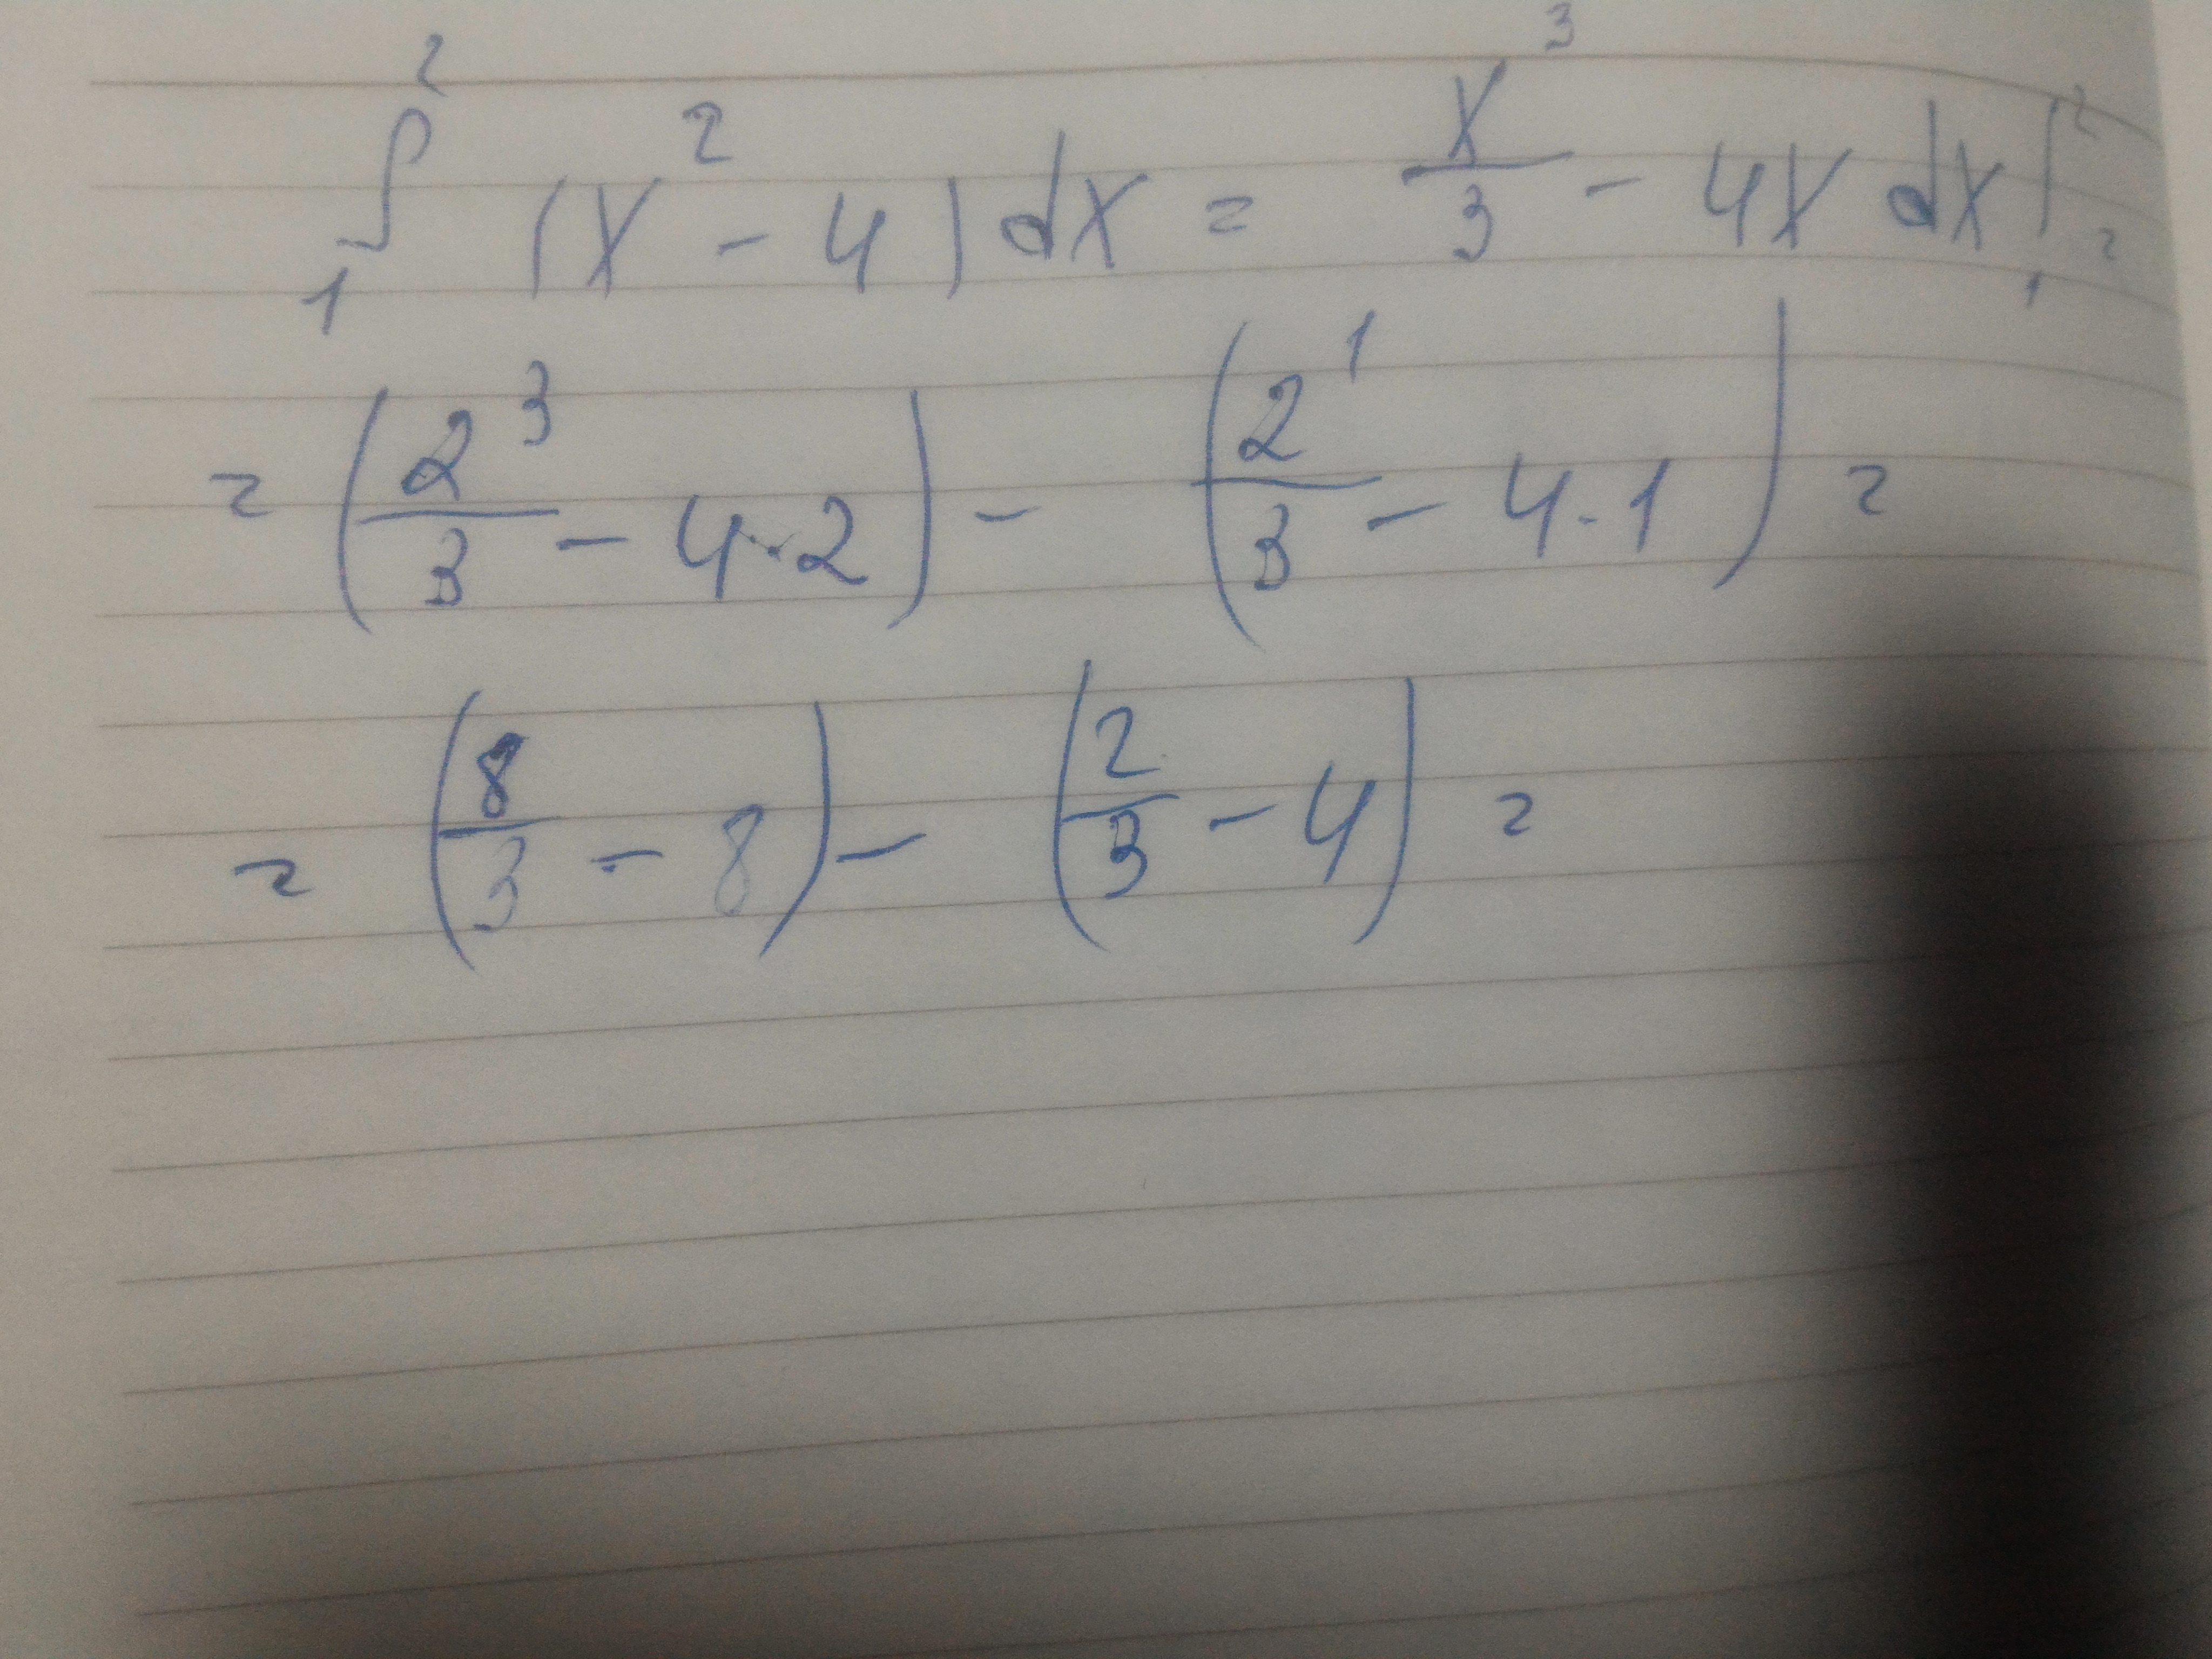 ∫₁² (x² - 4) dx = x³/3 - 4x dx |₁² =
= (2³/3 - 4·2) - (2¹/3 - 4·1) =
= (8/3 - 8) - (2/3 - 4) =